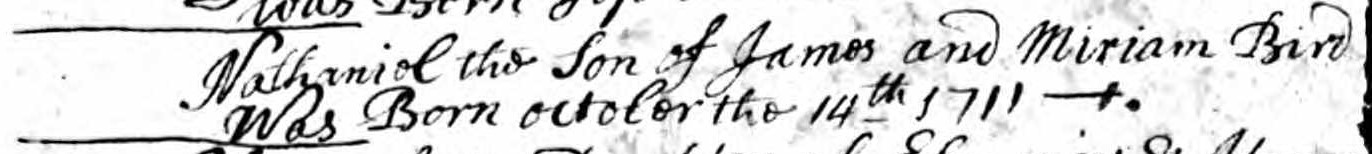 was Born
Nathaniel the Son of James and Miriam Bird
Was Born october the 14th 1711